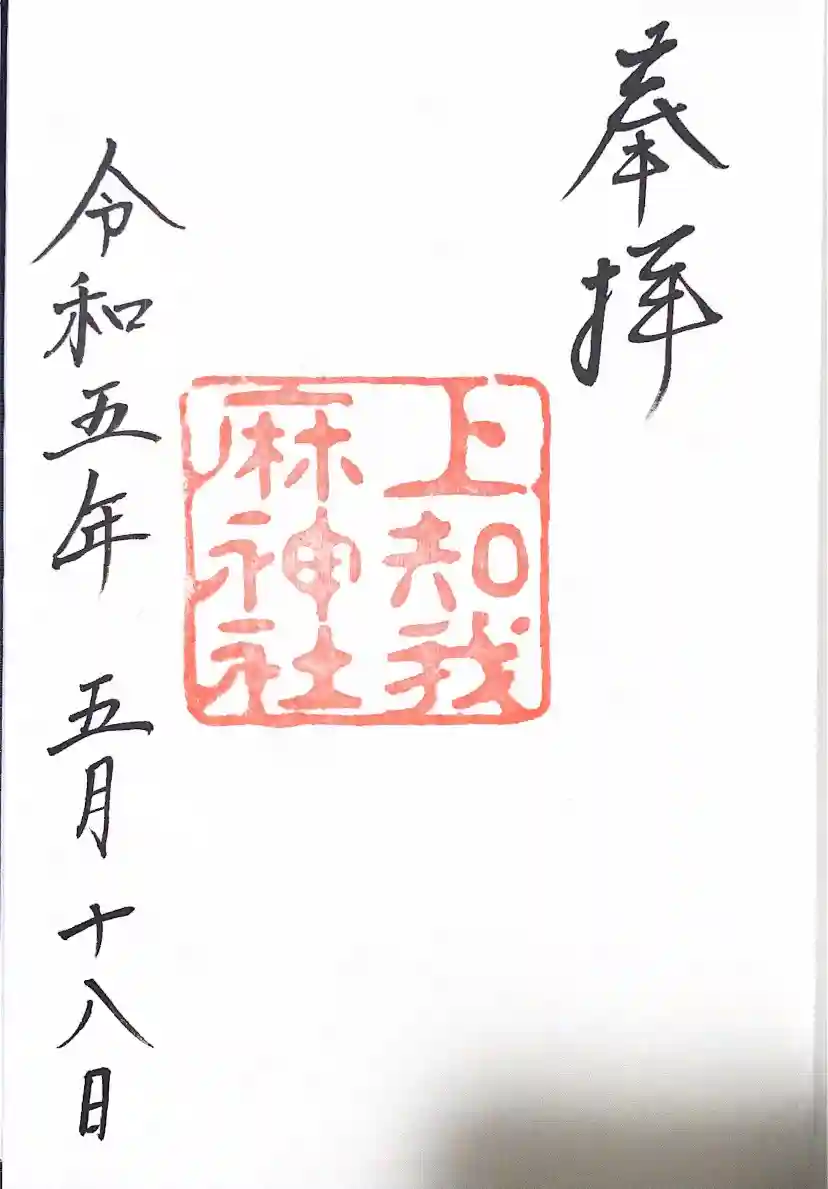 奉拝
上知我
麻神社
令和五年 五月十八日